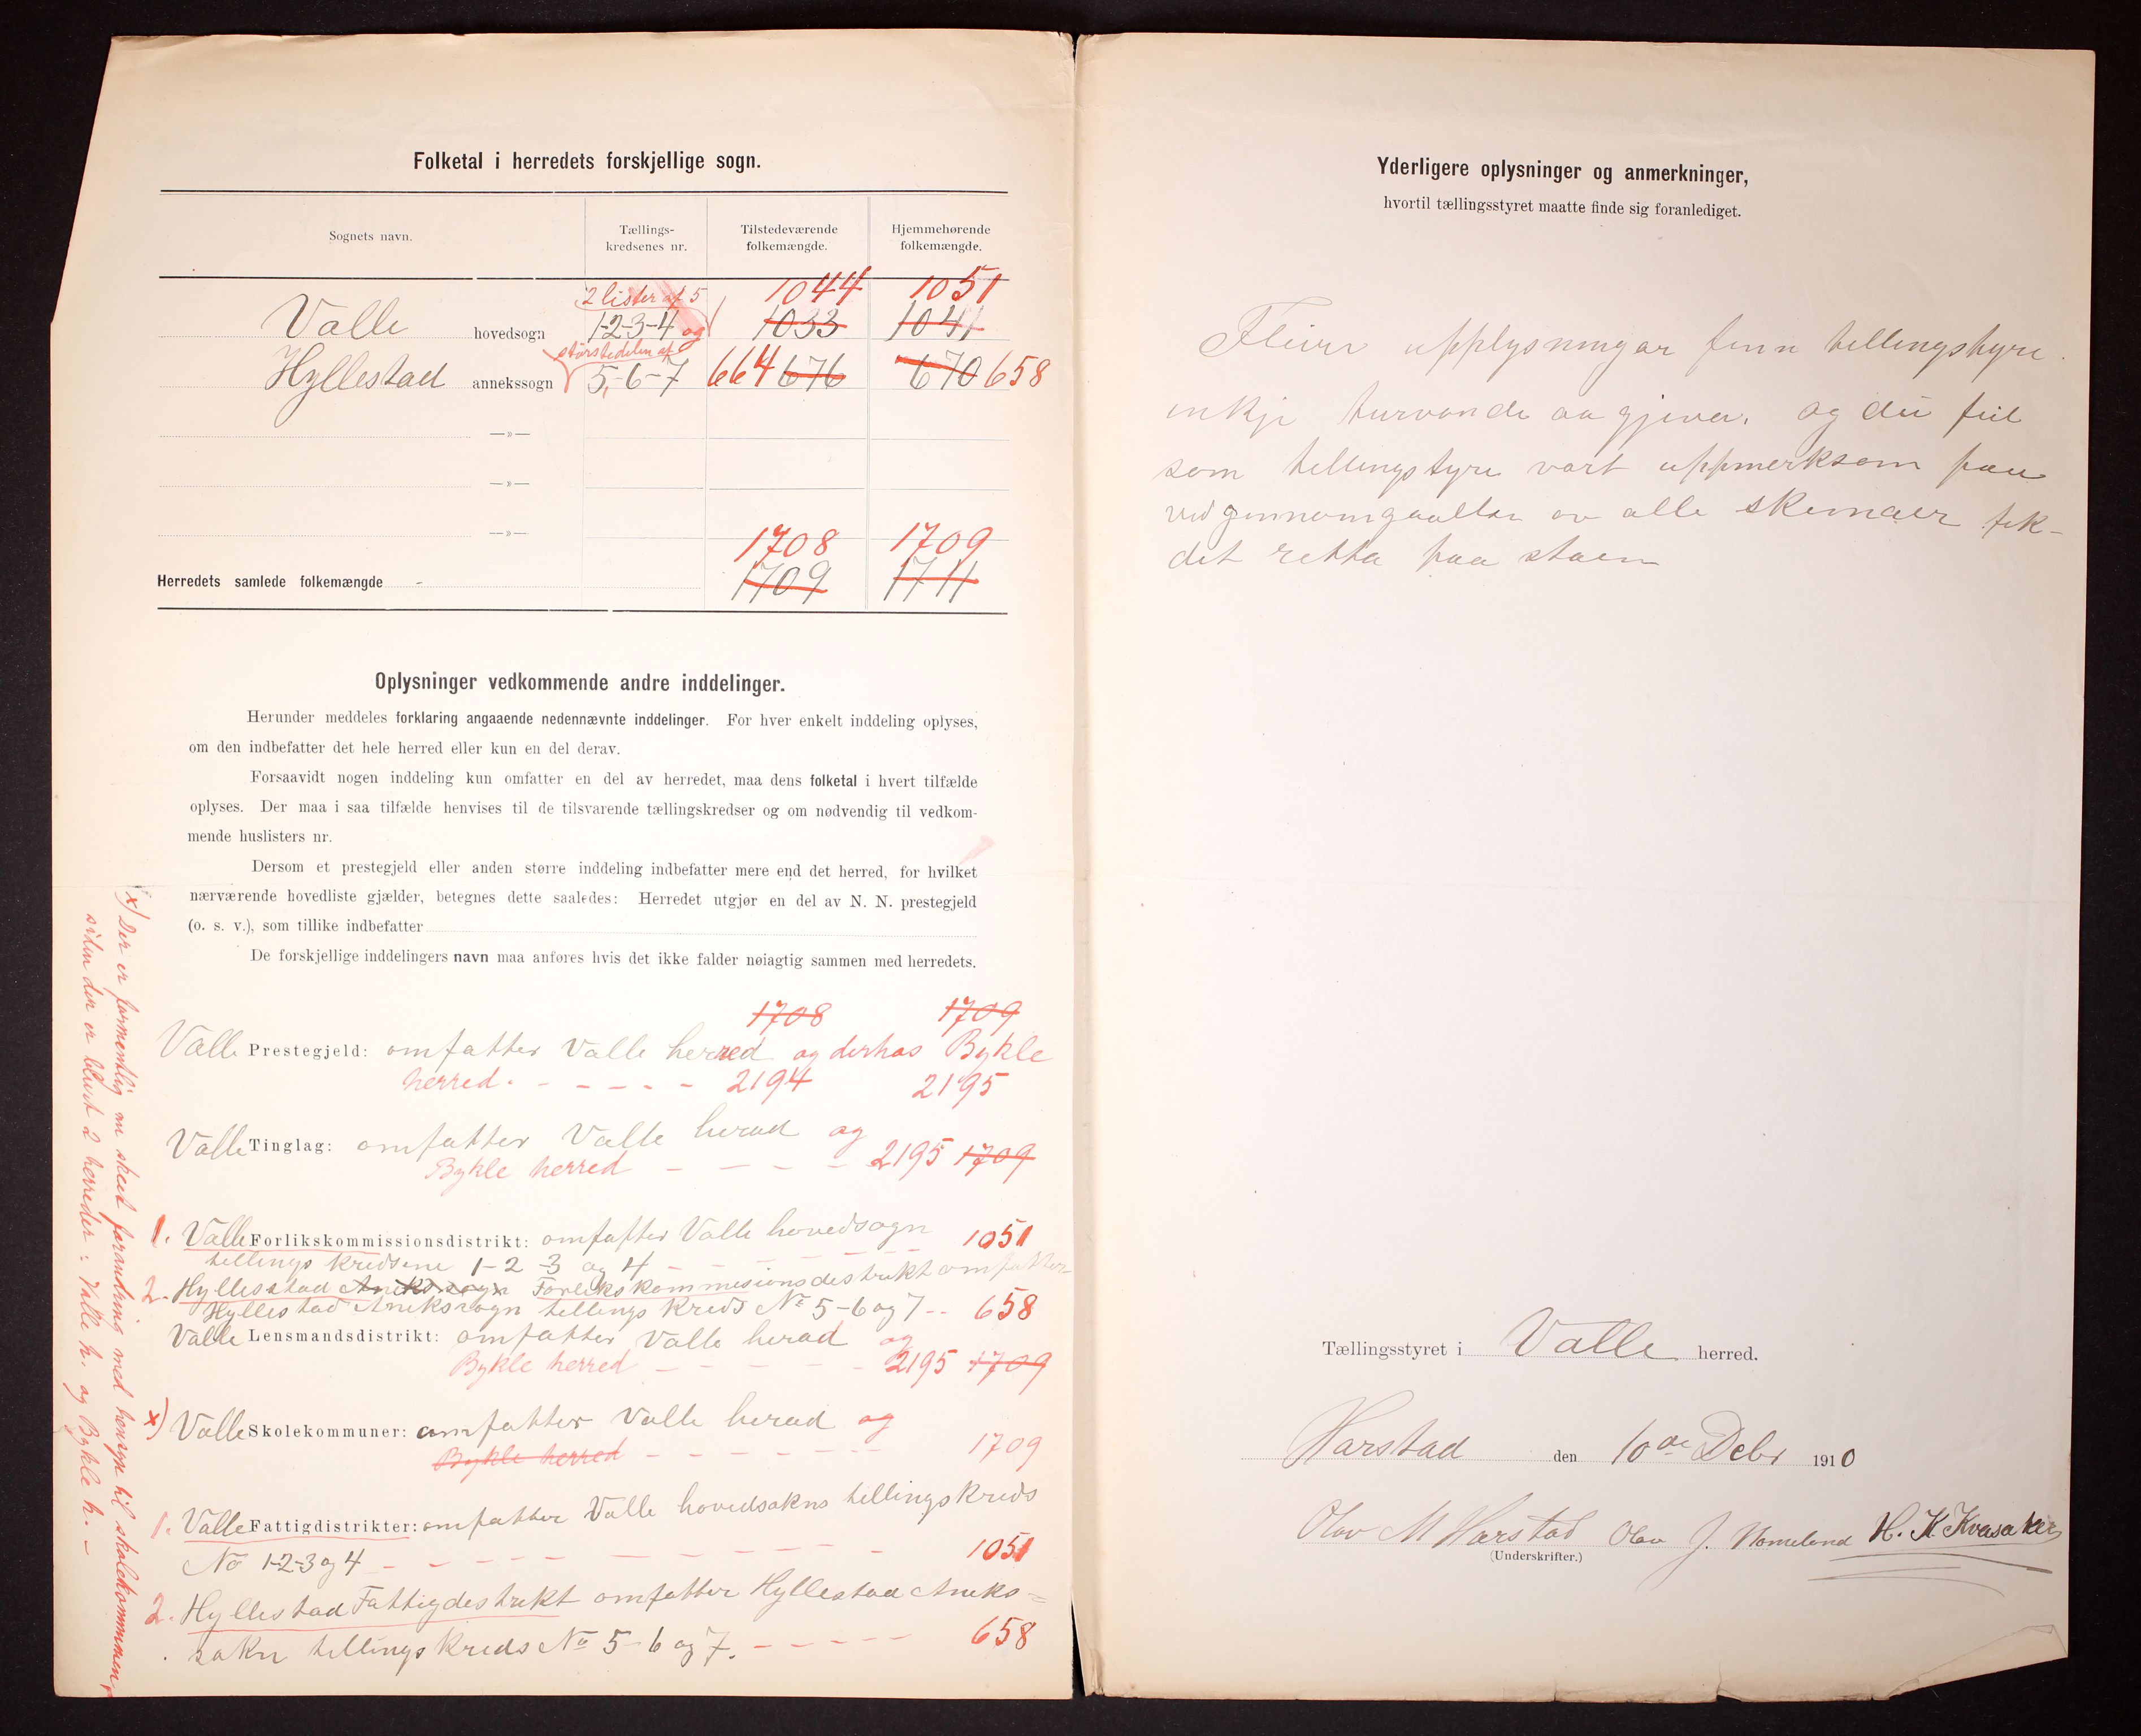 Folketal i herredets forskjellige sogn.
Sognets navn.
Tællings-
kredsenes nr.
Tilstedeværende
folkemængde.
Hjemmehørende
folkemængde.
2 lister af 5 1044 1051
Valle hovedsogn 1-2-3-4 og 1033 1041
størstedelen af
Hyllestad annekssogn 5-6-7 664 676 670 658
—»—
—»—
—»—
1708 1709
Herredets samlede folkemængde 1709 1711
Oplysninger vedkommende andre inddelinger.
Herunder meddeles forklaring angaaende nedennævnte inddelinger. For hver enkelt inddeling oplyses,
om den indbefatter det hele herred eller kun en del derav.
Forsaavidt nogen inddeling kun omfatter en del av herredet, maa dens folketal i hvert tilfælde
oplyses. Der maa i saa tilfælde henvises til de tilsvarende tællingskredser og om nødvendig til vedkom-
mende huslisters nr.
Dersom et prestegjeld eller anden større inddeling indbefatter mere end det herred, for hvilket
nærværende hovedliste gjælder, betegnes dette saaledes: Herredet utgjør en del av N. N. prestegjeld
(o. s. v.), som tillike indbefatter
De forskjellige inddelingers navn maa anføres hvis det ikke falder nøiagtig sammen med herredets.
1708 1709
Valle Prestegjeld: omfatter Valle herred og derhos Bykle
herred. - - - - - 2194 2195
Valle Tinglag: omfatter Valle herad og
Bykle herred - - - - 2195 1709
1. Valle Forlikskommissionsdistrikt: omfatter Valle hovedsogn 1051
tellings kredsene 1-2-3 og 4 - - - - -
2. Hyllestad Anekssogn Forlikskommesionsdestrikt omfatter
Hyllestad Anekssogn tellings Kreds No 5-6 og 7 - - 658
Valle Lensmandsdistrikt: omfatter Valle herad og
Bykle herred - - - - - 2195 1709
x) Valle Skolekommuner: omfatter Valle herad og
Bykle herred - - - - - - 1709
1. Valle Fattigdistrikter: omfatter Valle hovedsokns tellingskreds
No 1-2-3 og 4 - - - - - - - - - 1051
2. Hyllestad Fattigdestrikt omfatter Hyllestad Aneks=
sokn tellingskreds No 5-6 og 7. - - - - - 658
x) Der er formentlig en skeet forandring med hensyn til skolekommunen,
siden der er blevet 2 herreder: Valle h. og Bykle h. -
Yderligere oplysninger og anmerkninger,
hvortil tællingsstyret maatte finde sig foranlediget.
Fleire upplysningar finn tellingstyre
inkje turvande aa gjeva, og dei feil
som tellingstyre vart uppmerksom paa
ved gjennomgaaellen av alle skemaer fek-
det retta paa staen
Tællingsstyret i Valle herred.
Harstad den 10de Debr 1910
Olav M Harstad Olav J. Homeland H. K. Kvasaker
(Underskrifter.)